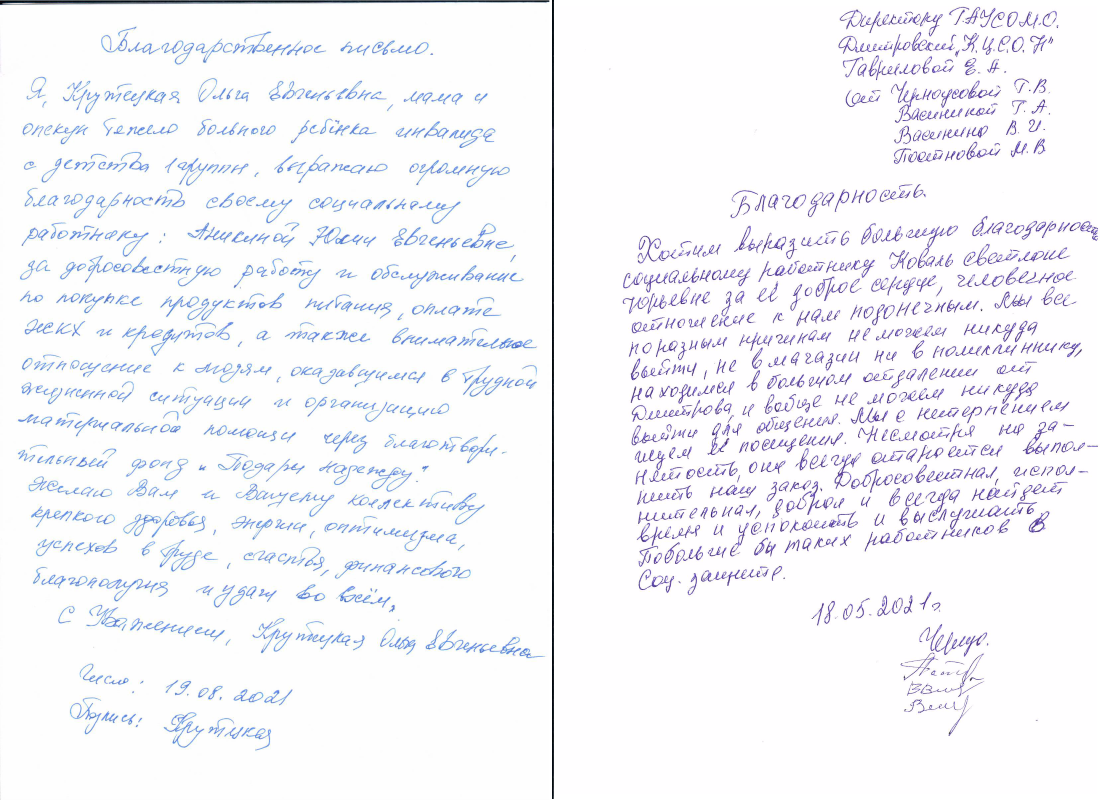 Благодарственное письмо.
Я, Крутецкая Ольга Евгеньевна, мама и
опекун тяжело больного ребёнка инвалида
с детства 1 группы, выражаю огромную
благодарность своему социальному
работнику: Аникиной Юлии Евгеньевне,
за добросовестную работу и обслуживание
по покупке продуктов питания, оплате
ЖКХ и кредитов, а также внимательное
отношение к людям, оказавшимся в трудной
жизненной ситуации и организацию
материальной помощи через благотвори-
тельный фонд "Подари надежду".
Желаю Вам и Вашему коллективу
крепкого здоровья, энергии, оптимизма,
успехов в труде, счастья, финансового
благополучия и удачи во всём.
С Уважением, Крутецкая Ольга Евгеньевна
Число: 19.08.2021
Подпись: Крутецкая
Директору ГАУСО М.О.
Дмитровский "К.Ц.С.О.Н"
Гавриловой Е.А.
от Черноусовой Т.В.
Васининой Т.А.
Васинина В.И.
Постновой М.В
Благодарность.
Хотим выразить большую благодарность
социальному работнику Коваль Светлане
Юрьевне за её доброе сердце, человечное
отношение к нам подопечным. Мы все
по разным причинам не можем никуда
выйти, не в магазин ни в поликлиннику,
находимся в большом отдалении от
Дмитрова, и вобще не можем никуда
выйти для общения. Мы с нетерпением
ждем её посещения. Несмотря на за-
нятость, она всегда старается выпол-
нить наш заказ. Добросовестная, испол-
нительная, добрая и всегда найдет
время и успокоить и выслушать.
Побольше бы таких работников в
Соц. защите.
18.05.2021г.